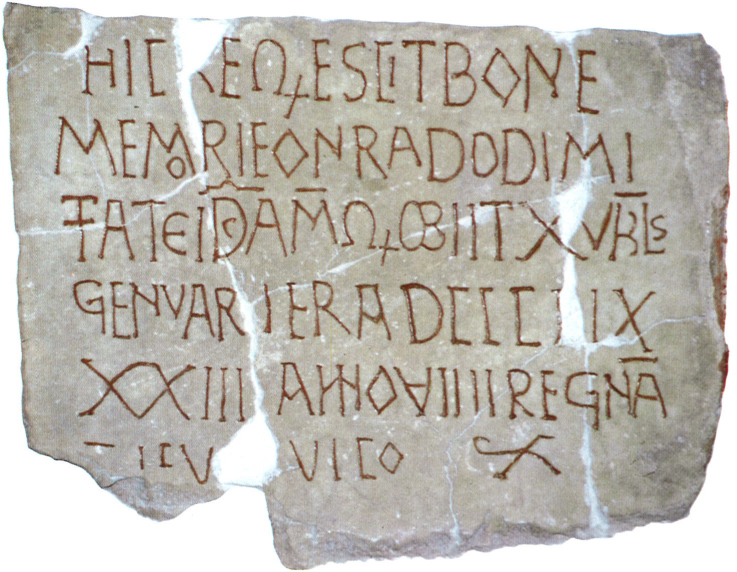 HIC REQESCIT BONE
MEMORIE ONRADO DIMI
TATE IDAMQ OBIIT XV KLS
GENVARI ERA
XXIII ANNO VIIII REGNA
VICO